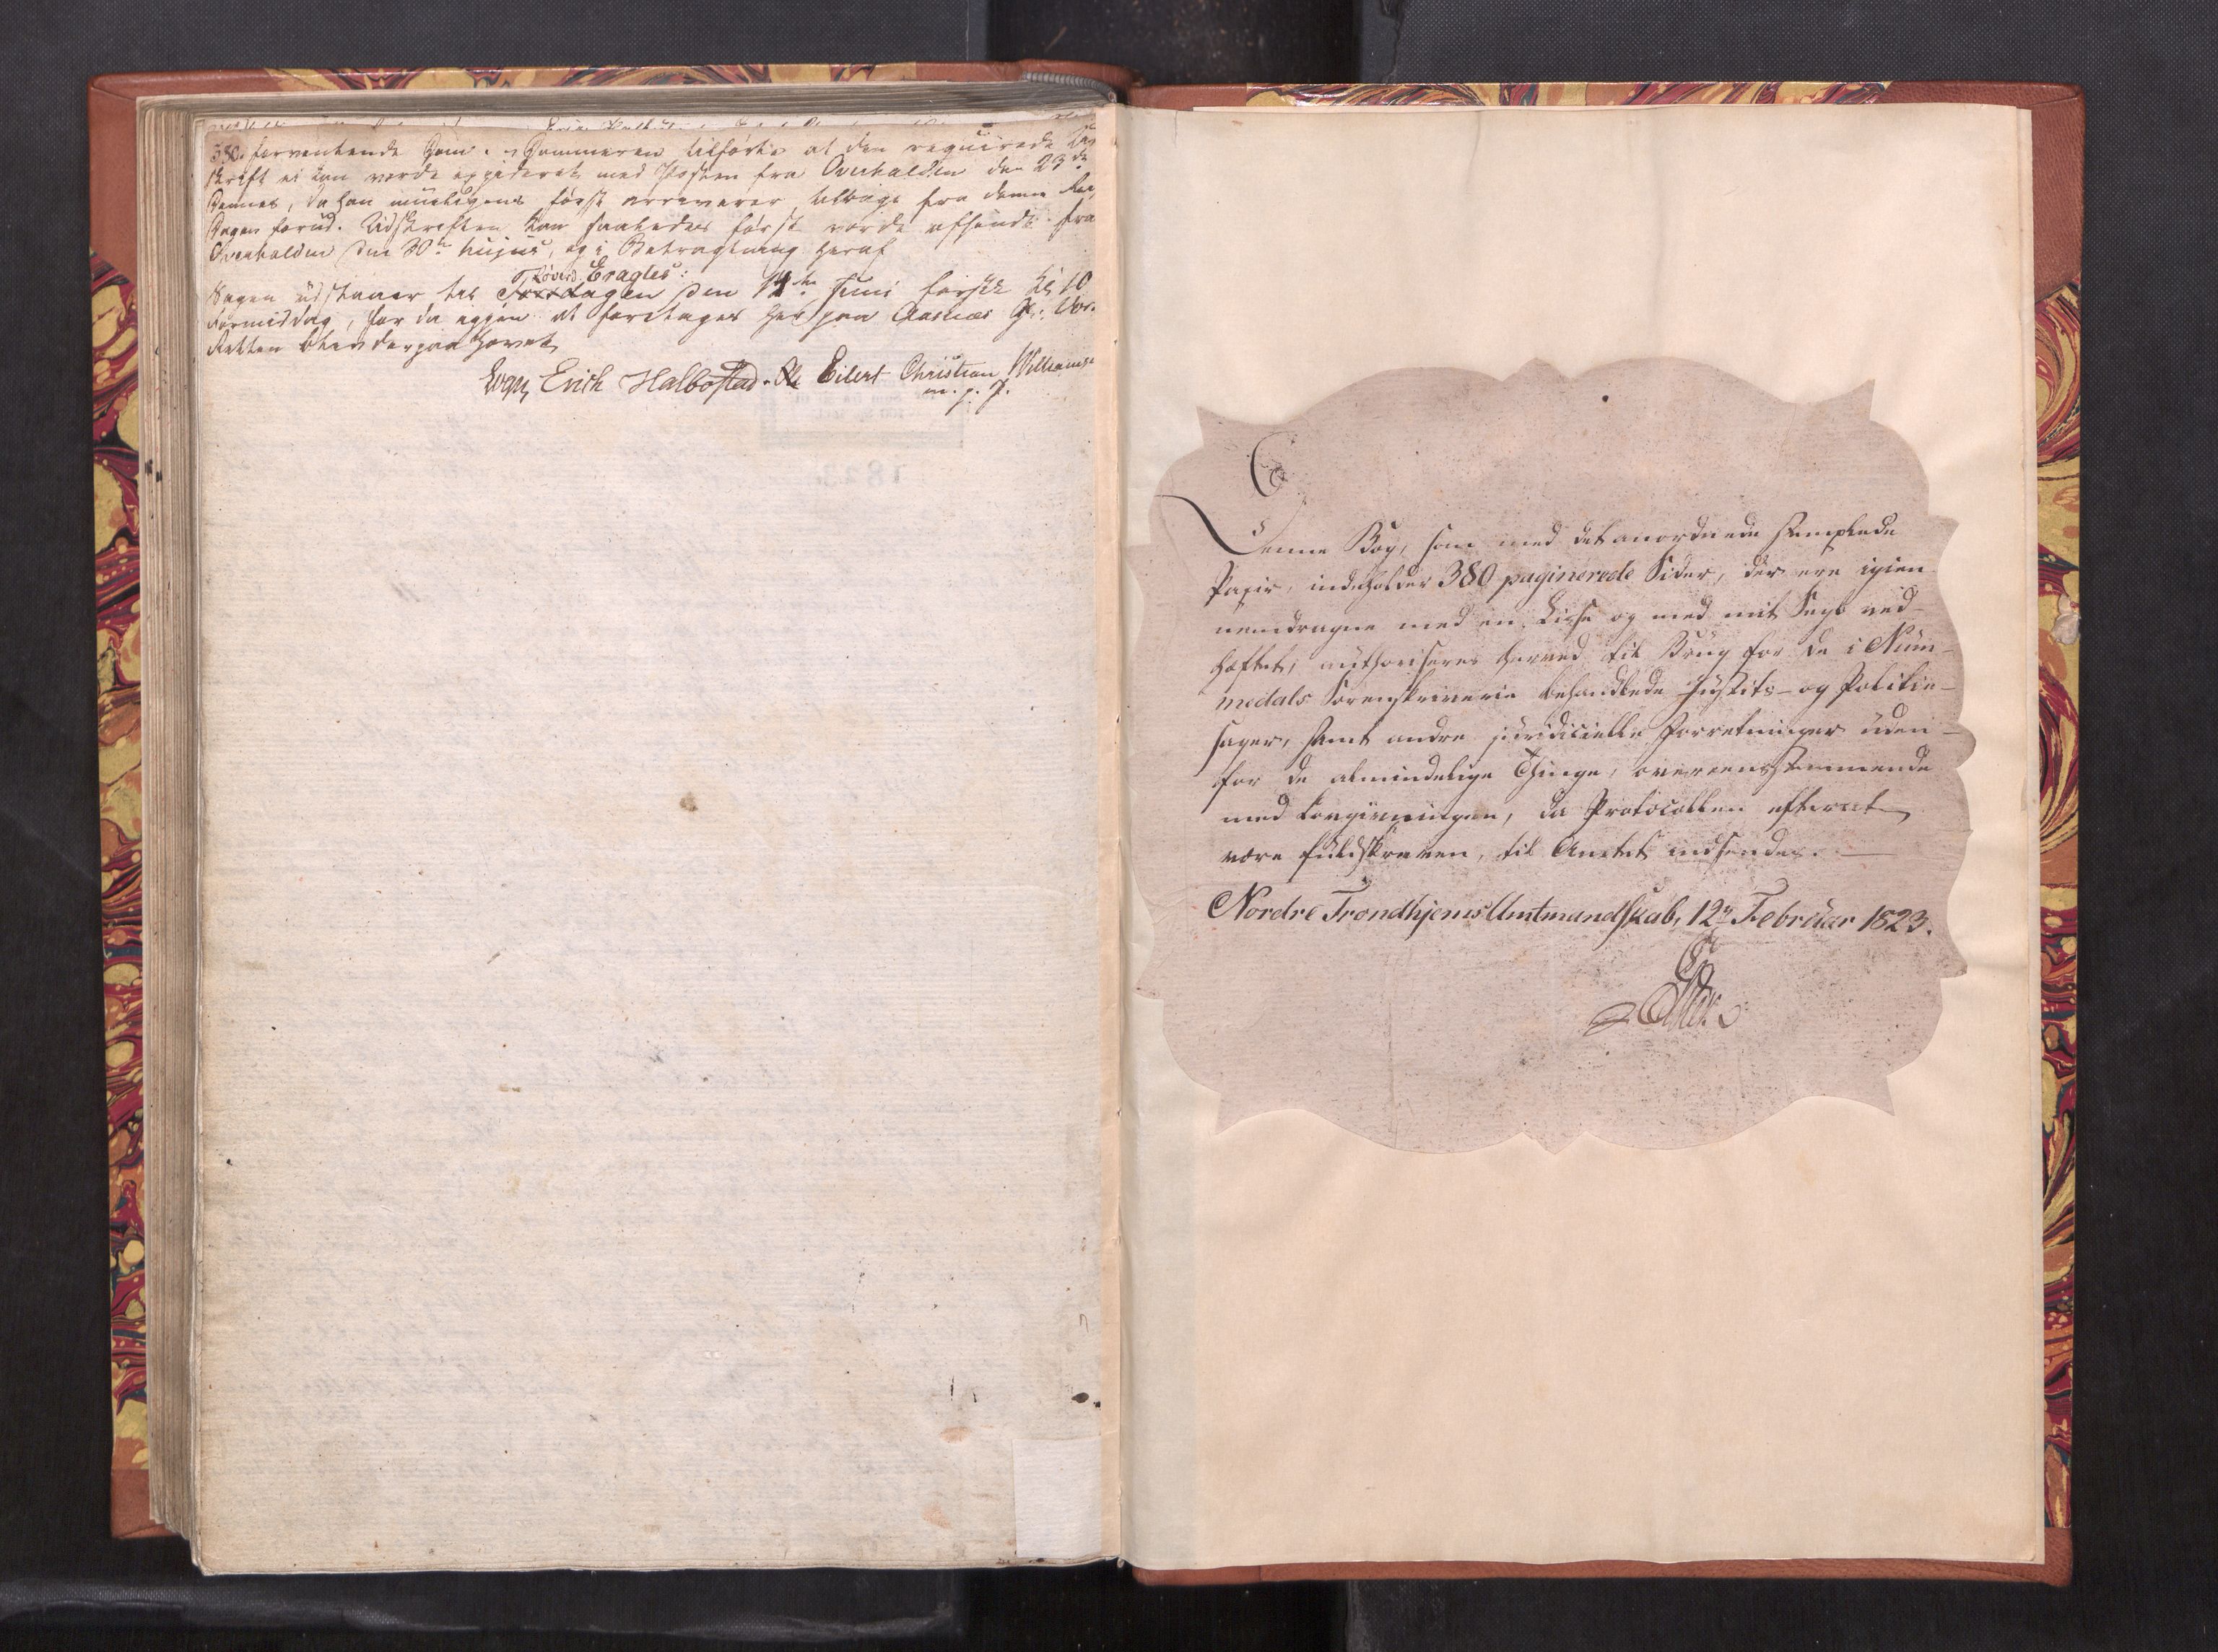 380. forventende Dom. Dommeren tilførte at den reqvirede
skrift ei kan vorde expederet med Posten fra Overhalden den 23de
Dennes, da han mueligens først arriverer tilbage fra denne
Dagen forud. Udskriften kan saaledes først vorde afsendt fra
Overhalden den 30te hujus, og i Betragtning heraf
Eragtes:
Sagen udstaaer til Løverdagen den 14de Juni førstk. Kl 10
Formiddag, for da igjen at foretages her paa Aasnæs
Retten blev derpaa hævet
Erich Halbostad. Ole Eilert Christian Williams
m. p. P.
Denne Bog, som med det anordnede stemplede
Papir, indeholder 380 paginerede Sider, der ere igien-
nemdragne med en Lidse og med mit Segl ved-
hæftet, authoriseres herved til Brug for de i Num-
medals Sorenskriverie behandlede Justits- og Politie-
sager, samt andre juridicielle Forretninger uden-
for de almindelige Thinge, overeensstemmende
med Lovgivningen, da Protocollen efter at
være fuldskreven, til Amtet indsendes.
Nordre Trondhjems Amtmandskab, 12te Februar 1823.